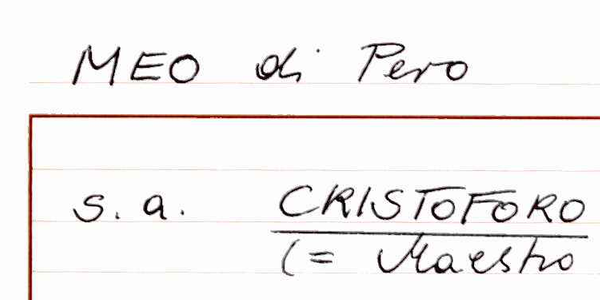 MEO di Pero
s. a. CRISTOFORO
(= Maestro